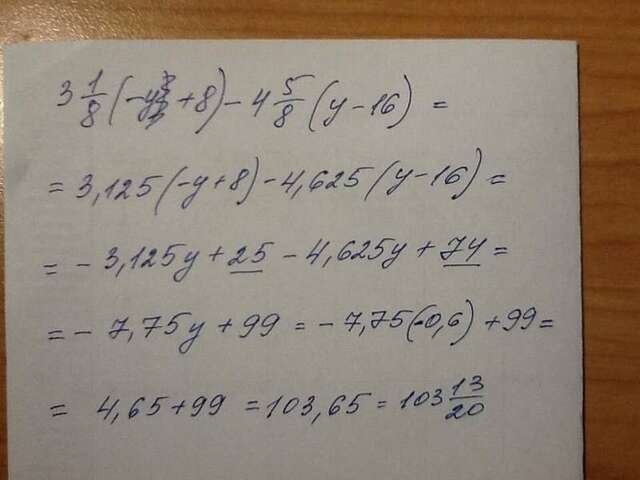 3 1/8 (-y + 8) - 4 5/8 (y - 16) =
= 3,125 (-y + 8) - 4,625 (y - 16) =
= - 3,125y + 25 - 4,625y + 74 =
= - 7,75y + 99 = - 7,75(-0,6) + 99 =
= 4,65 + 99 = 103,65 = 103 13/20